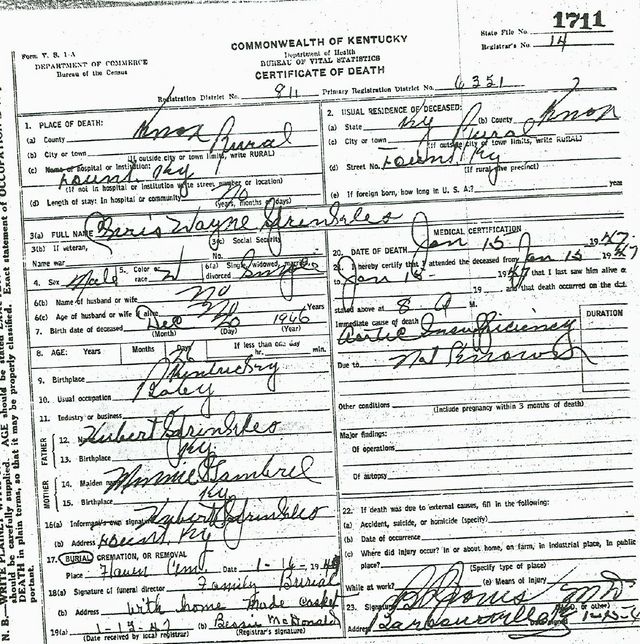 1711
State File No.
Registrar's No. 14
Form V. S. 1-A
DEPARTMENT OF COMMERCE
Bureau of the Census
COMMONWEALTH OF KENTUCKY
Department of Health
BUREAU OF VITAL STATISTICS
CERTIFICATE OF DEATH
Registration District No. 811 Primary Registration District No. 6351
1. PLACE OF DEATH:
(a) County Knox
(b) City or town Rural
(If outside city or town limits, write RURAL)
(c) Name of hospital or institution:
Ky
(If not in hospital or institution write street number or location)
(d) Length of stay: In hospital or community
(years, months or days)
2. USUAL RESIDENCE OF DECEASED:
(a) State Ky (b) County Knox
(c) City or town Rural
(If outside city or town limits, write RURAL)
(d) Street No. Ky
(If rural give precinct)
(e) If foreign born, how long in U. S. A.? year
3(a) FULL NAME Wayne
3(b) If veteran,
Name war
3(c) Social Security
No.
4. Sex Male 5. Color race W 6(a) Single, widowed, married, divorced Single
6(b) Name of husband or wife No
6(c) Age of husband or wife if alive No Years
7. Birth date of deceased Dec 20 1946
(Month) (Day) (Year)
8. AGE: Years Months Days If less than one day
hr. min.
9. Birthplace Kentucky
10. Usual occupation Baby
11. Industry or business
FATHER
12. Name Hubert
13. Birthplace Ky
MOTHER
14. Maiden name Minnie Gambrel
15. Birthplace Ky
16(a) Informant's own signature Hubert
(b) Address Ky
17. BURIAL, CREMATION, OR REMOVAL
Place Cem Date 1-16-
18(a) Signature of funeral director Family Burial
(b) Address With home made casket
19(a) 1-13-47 (b) Bessie McDonald
(Date received by local registrar) (Registrar's signature)
MEDICAL CERTIFICATION
20. DATE OF DEATH Jan 15 1947
21. I hereby certify that I attended the deceased from Jan 15 1947
to Jan 15 1947 that I last saw him alive on
19 and that death occurred on the date
stated above at 8 M.
DURATION
Immediate cause of death
Aortic Insufficiency
Due to Not Known
Other conditions
(Include pregnancy within 3 months of death)
Major findings:
Of operations
Of autopsy
22. If death was due to external causes, fill in the following:
(a) Accident, suicide, or homicide (specify)
(b) Date of occurrence
(c) Where did injury occur? In or about home, on farm, in industrial place, in public
place?
(Specify type of place)
While at work? (e) Means of injury
23. Signature
Barbourville